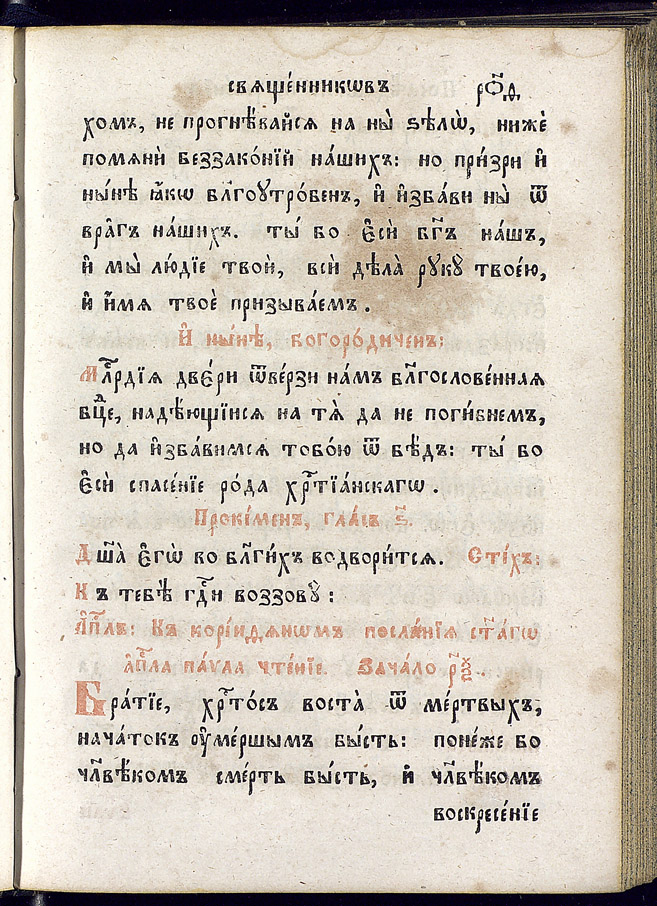 свѧще́нникѡвъ рѳ҃д
хомъ, не прогнѣ́вайсѧ на ны̀ ѕѣлѡ̀, нижѐ
помѧнѝ беззако́нїй на́шихъ: но при́зри и҆
ны́нѣ ꙗ҆́кѡ бл҃гоꙋтро́бенъ, и҆ и҆зба́ви ны̀ ѿ
вра̑гъ на́шихъ. ты́ бо є҆сѝ бг҃ъ на́шъ,
и҆ мы̀ лю́дїе твоѝ, всѝ дѣла̀ рꙋкꙋ̀ твоє́ю,
и҆ и҆́мѧ твоѐ призыва́емъ.
И҆ ны́нѣ, богоро́диченъ:
Млⷭ҇рдїѧ две́ри ѿве́рзи на́мъ бл҃гослове́ннаѧ
бцⷣе, надѣ́ющїисѧ на тѧ̀ да не поги́бнемъ,
но да и҆зба́вимсѧ тобо́ю ѿ бѣ́дъ: ты́ бо
є҆сѝ спасе́нїе ро́да хрⷭ҇тїа́нскагѡ.
Проки́менъ, гла́съ ѕ҃.
Дш҃а̀ є҆гѡ̀ во бл҃ги́хъ водвори́тсѧ. Сті́хъ:
Къ тебѣ̀ гдⷭ҇и воззовꙋ̀:
А҆пⷭ҇лъ: Къ корі́нѳѧнѡмъ посла́нїѧ ст҃а́гѡ
а҆пⷭ҇ла па́ѵла чте́нїе. Зача́ло рѯ҃.
Бра́тїе, хрⷭ҇то́съ воста̀ ѿ ме́ртвыхъ,
нача́токъ ᲂу҆ме́ршымъ бы́сть: поне́же бо
чл҃вѣ́комъ сме́рть бы́сть, и҆ чл҃вѣ́комъ
воскресе́нїе